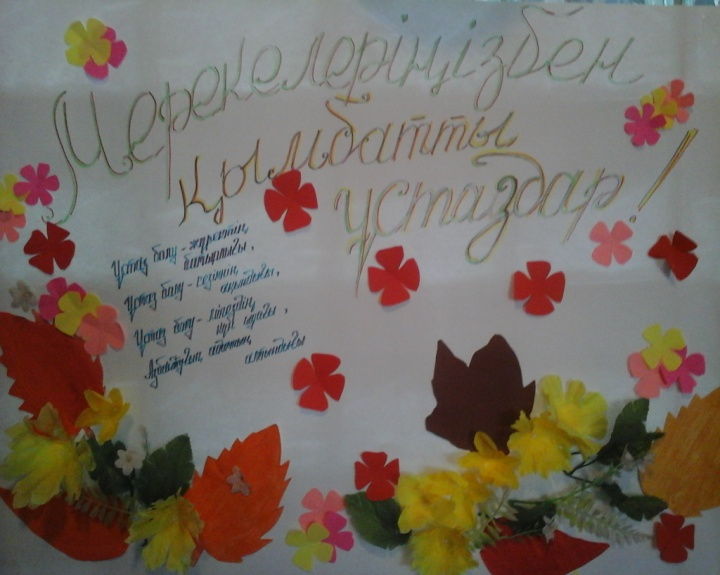 Мерекелеріңізбен
қымбатты
ұстаздар!
Ұстаз болу - жүректің
батырлығы,
Ұстаз болу - сезімнің
ақындығы,
Ұстаз болу - мінездің
күн шуағы,
алтындығы